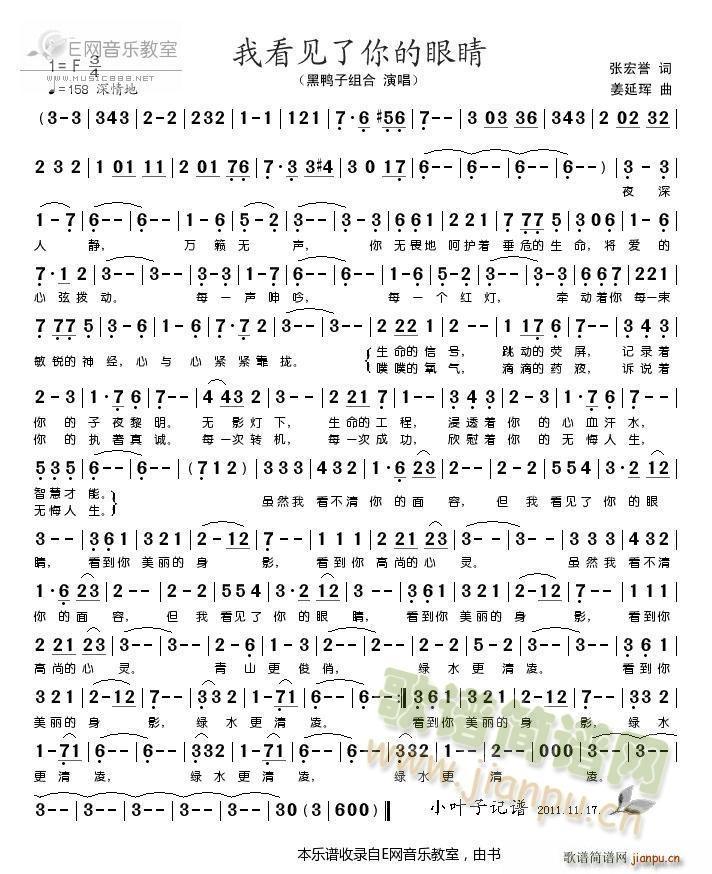 E网音乐教室
WWW.MUSIC888.NET
我看见了你的眼睛
(黑鸭子组合 演唱)
张宏誉 词
姜延珲 曲
1=F 3/4
♩=158 深情地
(3-3|343|2-2|232|1-1|121|7·6#56|7--|30336|343|20232|
232|10111|20176|7·33#43|3017|6--|6--|6--)|3-3|
夜 深
1-7|6--|6--|1-6|5-2|3--|3-3|661|221|7775|306|1-6|
人 静, 万籁无 声, 你 无畏地 呵护着 垂危的生命,将 爱的
7·12|3--|3--|3-3|2-1|3--|3-3|2-1|3--|3-3|667|221|
心弦拨动。 每一声呻吟, 每一个红灯, 牵动着你 每一束
7775|3-6|1-6|7·72|3--|3--|2221|2--|2221|7--|343|
敏锐的神经,心与心紧紧靠拢。 生命的信号, 跳动的荧屏, 记录着
噗噗的氧气, 滴滴的药液, 诉说着
2-3|1·76|7--|4432|3--|3332|1--|222|1-2|1·76|7--|
你的子夜黎明。无影灯下, 生命的工程, 浸透着你的心血汗水,
你的执著真诚。每一次转机, 每一次成功, 欣慰着你的无悔人生,
535|6--|6--|(712)|333|432|1·623|2--|2-2|554|3-212|
智慧才能。 虽然我看不清你的面容, 但我看见了你的眼
无悔人生。
3--|361|321|2-12|3--|361|22123|3--|3--|333|432|
睛, 看到你美丽的身影, 看到你高尚的心灵。 虽然我看不清
1·623|2--|2-2|554|3·212|3--|361|321|2-12|3--|361|
你的面容, 但我看见了你的眼睛, 看到你美丽的身影, 看到你
22123|3--|3--|1-6|2-2|1-6|6--|2-2|5-2|3--|361|
高尚的心灵。 青山更俊俏, 绿水更清凌。 看到你
321|2-12|7--|332|1-71|6--|6--:‖361|321|2-12|3--|332|
美丽的身影, 绿水更清凌。 看到你美丽的身影, 绿水
1-71|6--|6--|332|1-71|6--|6--|332|1-2|000|3--|3--|
更清凌, 绿水更清凌。 绿水更清凌。
3--|3--|3--|3--|30(3|600)‖
小叶子记谱 2011.11.17.
歌谱简谱网
www.jianpu.cn
本乐谱收录自E网音乐教室,由书
歌谱简谱网 jianpu.cn